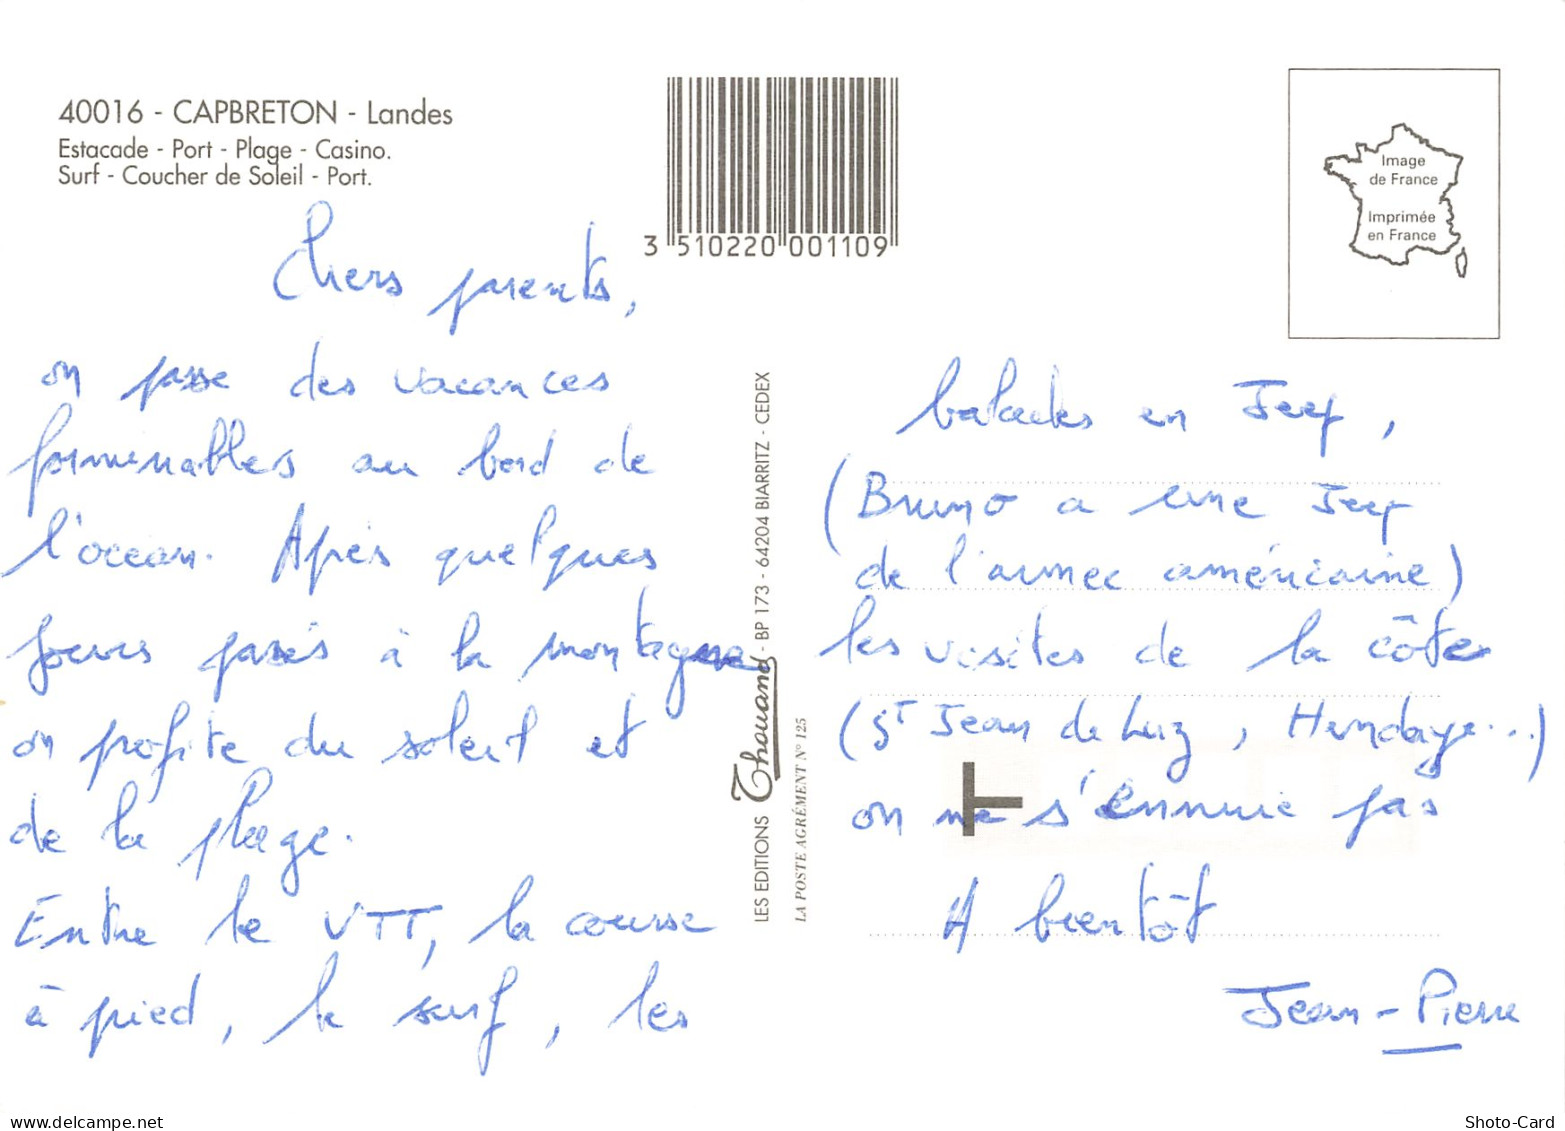 40016 - CAPBRETON - Landes
Estacade - Port - Plage - Casino.
Surf - Coucher de Soleil - Port.
3 510220 001109
Image
de France
Imprimée
en France
Chers parents,
on passe des vacances
forminables au bord de
l'océan. Après quelques
jours passés à la montagne
on profite du soleil et
de la plage.
Entre le VTT, la course
à pied, le surf, les
LES EDITIONS Thouand - BP 173 - 64204 BIARRITZ - CEDEX
LA POSTE AGRÉMENT N° 125
balades en Jeep,
(Bruno a une Jeep
de l'armée américaine)
les visites de la côte
(St Jean de Luz, Hendaye...)
T
on ne s'ennuie pas
A bientôt
Jean-Pierre
www.delcampe.net
Shoto-Card